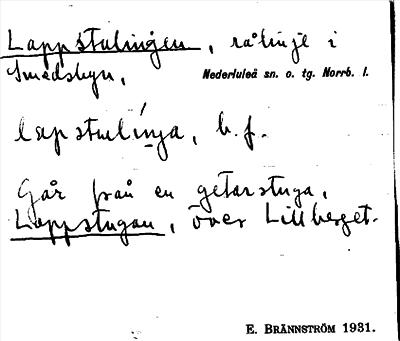 Lappstulinjen, rålinje i
Smedsbyn,
Nederluleå sn. o. tg. Norrb. l.
lapstulinja, b.f.
Går från en getarstuga,
Lappstugan, över Lillberget.
E. BRÄNNSTRÖM 1931.